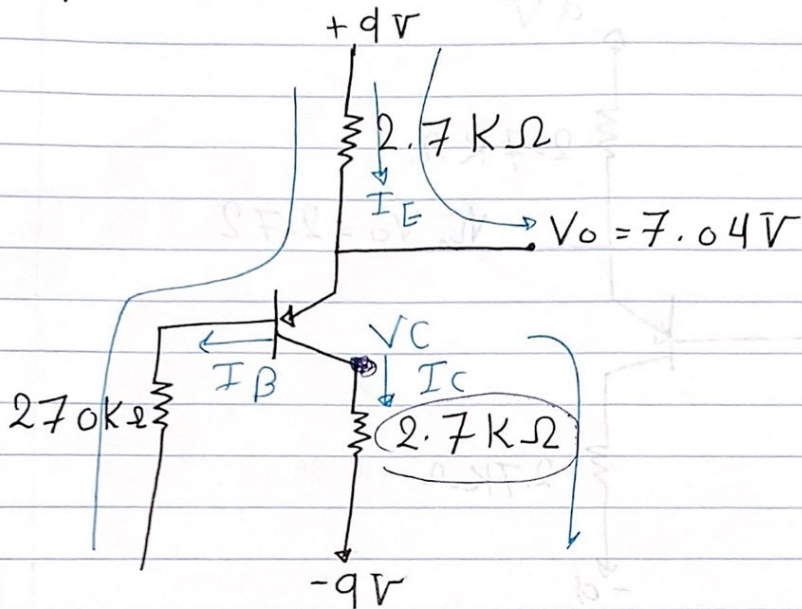 +9V
2.7KΩ
IE
Vo = 7.04V
VC
IB
IC
270KΩ
2.7KΩ
-9V